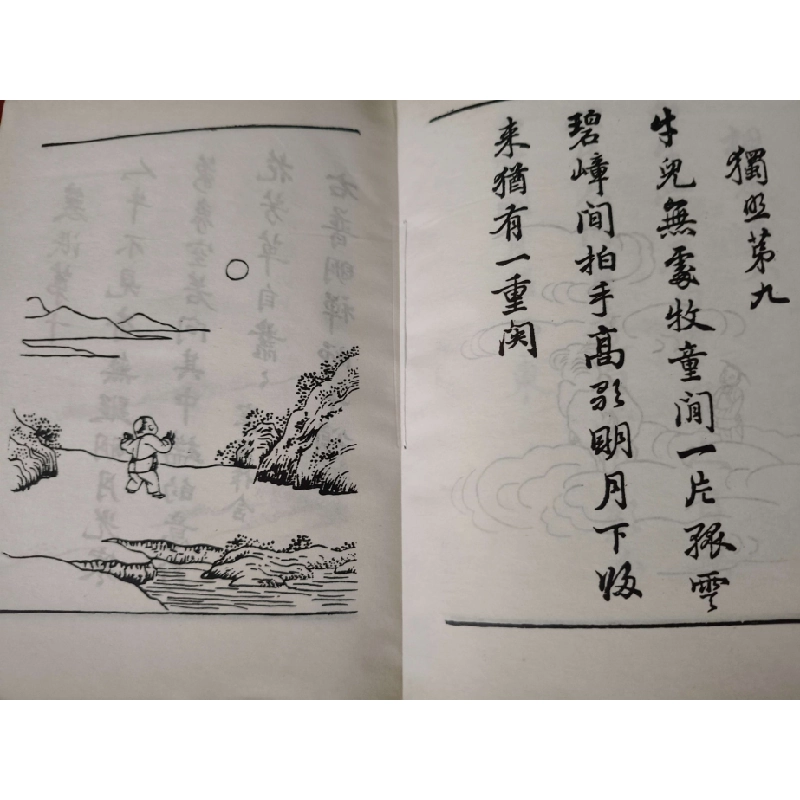 獨照第九
牛兒無處牧童间一片孤雲
碧嶂间拍手高歌明月下歸
来猶有一重関